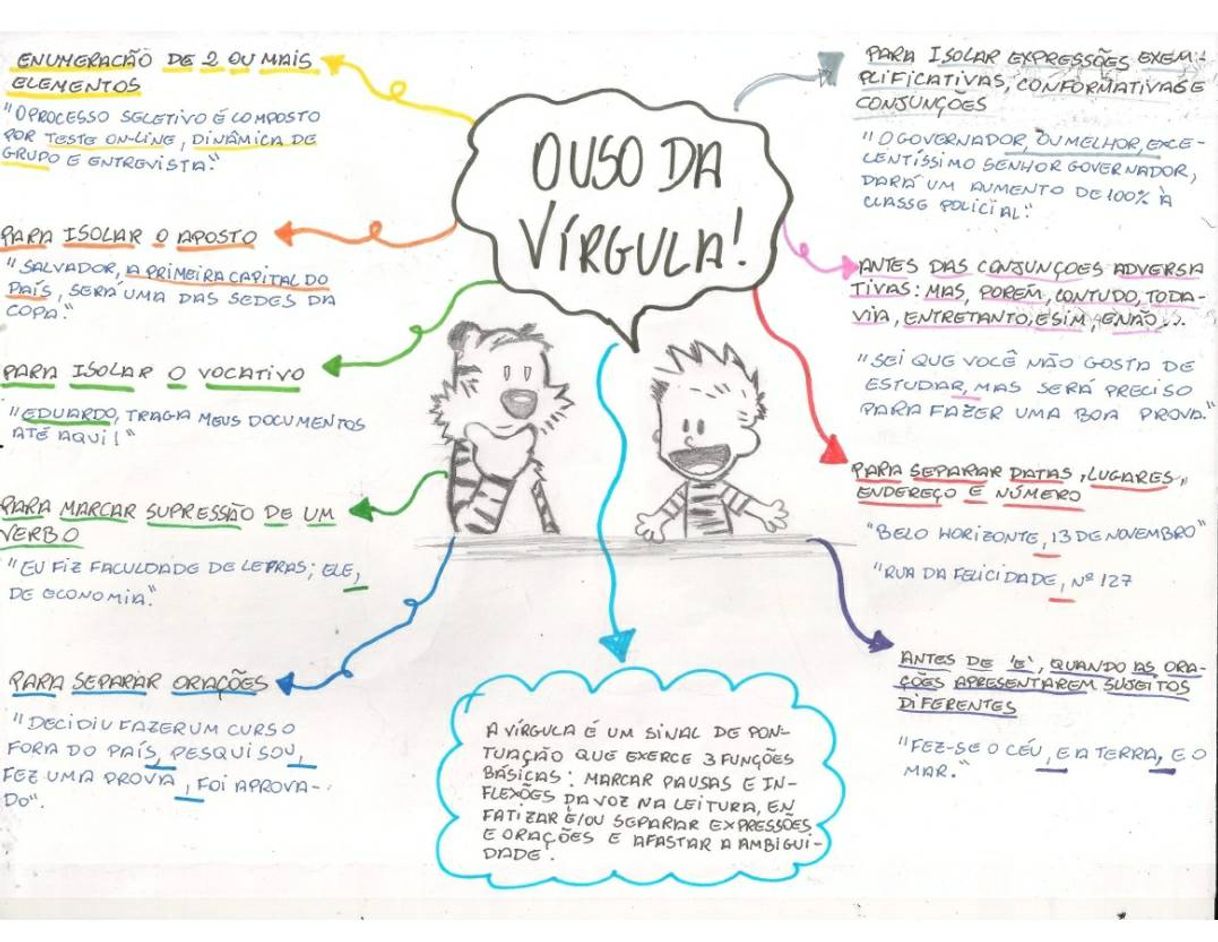 O USO DA
VÍRGULA!
ENUMERACÃO DE 2 OU MAIS
ELEMENTOS
"O PROCESSO SELETIVO É COMPOSTO
POR TESTE ON-LINE, DINÂMICA DE
GRUPO E ENTREVISTA."
PARA ISOLAR O APOSTO
"SALVADOR, A PRIMEIRA CAPITAL DO
PAÍS, SERÁ UMA DAS SEDES DA
COPA."
PARA ISOLAR O VOCATIVO
"EDUARDO, TRAGA MEUS DOCUMENTOS
ATÉ AQUI!"
PARA MARCAR SUPRESSÃO DE UM
VERBO
"EU FIZ FACULDADE DE LETRAS; ELE,
DE ECONOMIA."
PARA SEPARAR ORAÇÕES
"DECIDIU FAZER UM CURSO
FORA DO PAÍS, PESQUISOU,
FEZ UMA PROVA, FOI APROVA-
DO".
PARA ISOLAR EXPRESSÕES EXEM-
PLIFICATIVAS, CONFORMATIVAS E
CONJUNÇÕES
"O GOVERNADOR, OU MELHOR, EXCE-
LENTÍSSIMO SENHOR GOVERNADOR,
DARÁ UM AUMENTO DE 100% À
CLASSE POLICIAL."
ANTES DAS CONJUNÇOES ADVERSA
TIVAS: MAS, POREM, CONTUDO, TODA-
VIA, ENTRETANTO, E SIM, E NÃO...
"SEI QUE VOCÊ NÃO GOSTA DE
ESTUDAR, MAS SERÁ PRECISO
PARA FAZER UMA BOA PROVA."
PARA SEPARAR DATAS, LUGARES,
ENDEREÇO E NÚMERO
"BELO HORIZONTE, 13 DE NOVEMBRO"
"RUA DA FELICIDADE, Nº 127
ANTES DE 'E', QUANDO AS ORA
ÇÕES APRESENTAREM SUJEITOS
DIFERENTES
"FEZ-SE O CÉU, E A TERRA, E O
MAR."
A VÍRGULA É UM SINAL DE PON-
TUAÇÃO QUE EXERCE 3 FUNÇÕES
BÁSICAS: MARCAR PAUSAS E IN-
FLEXÕES DA VOZ NA LEITURA, EN
FATIZAR E/OU SEPARAR EXPRESSÕES
E ORAÇÕES E AFASTAR A AMBIGUI-
DADE.